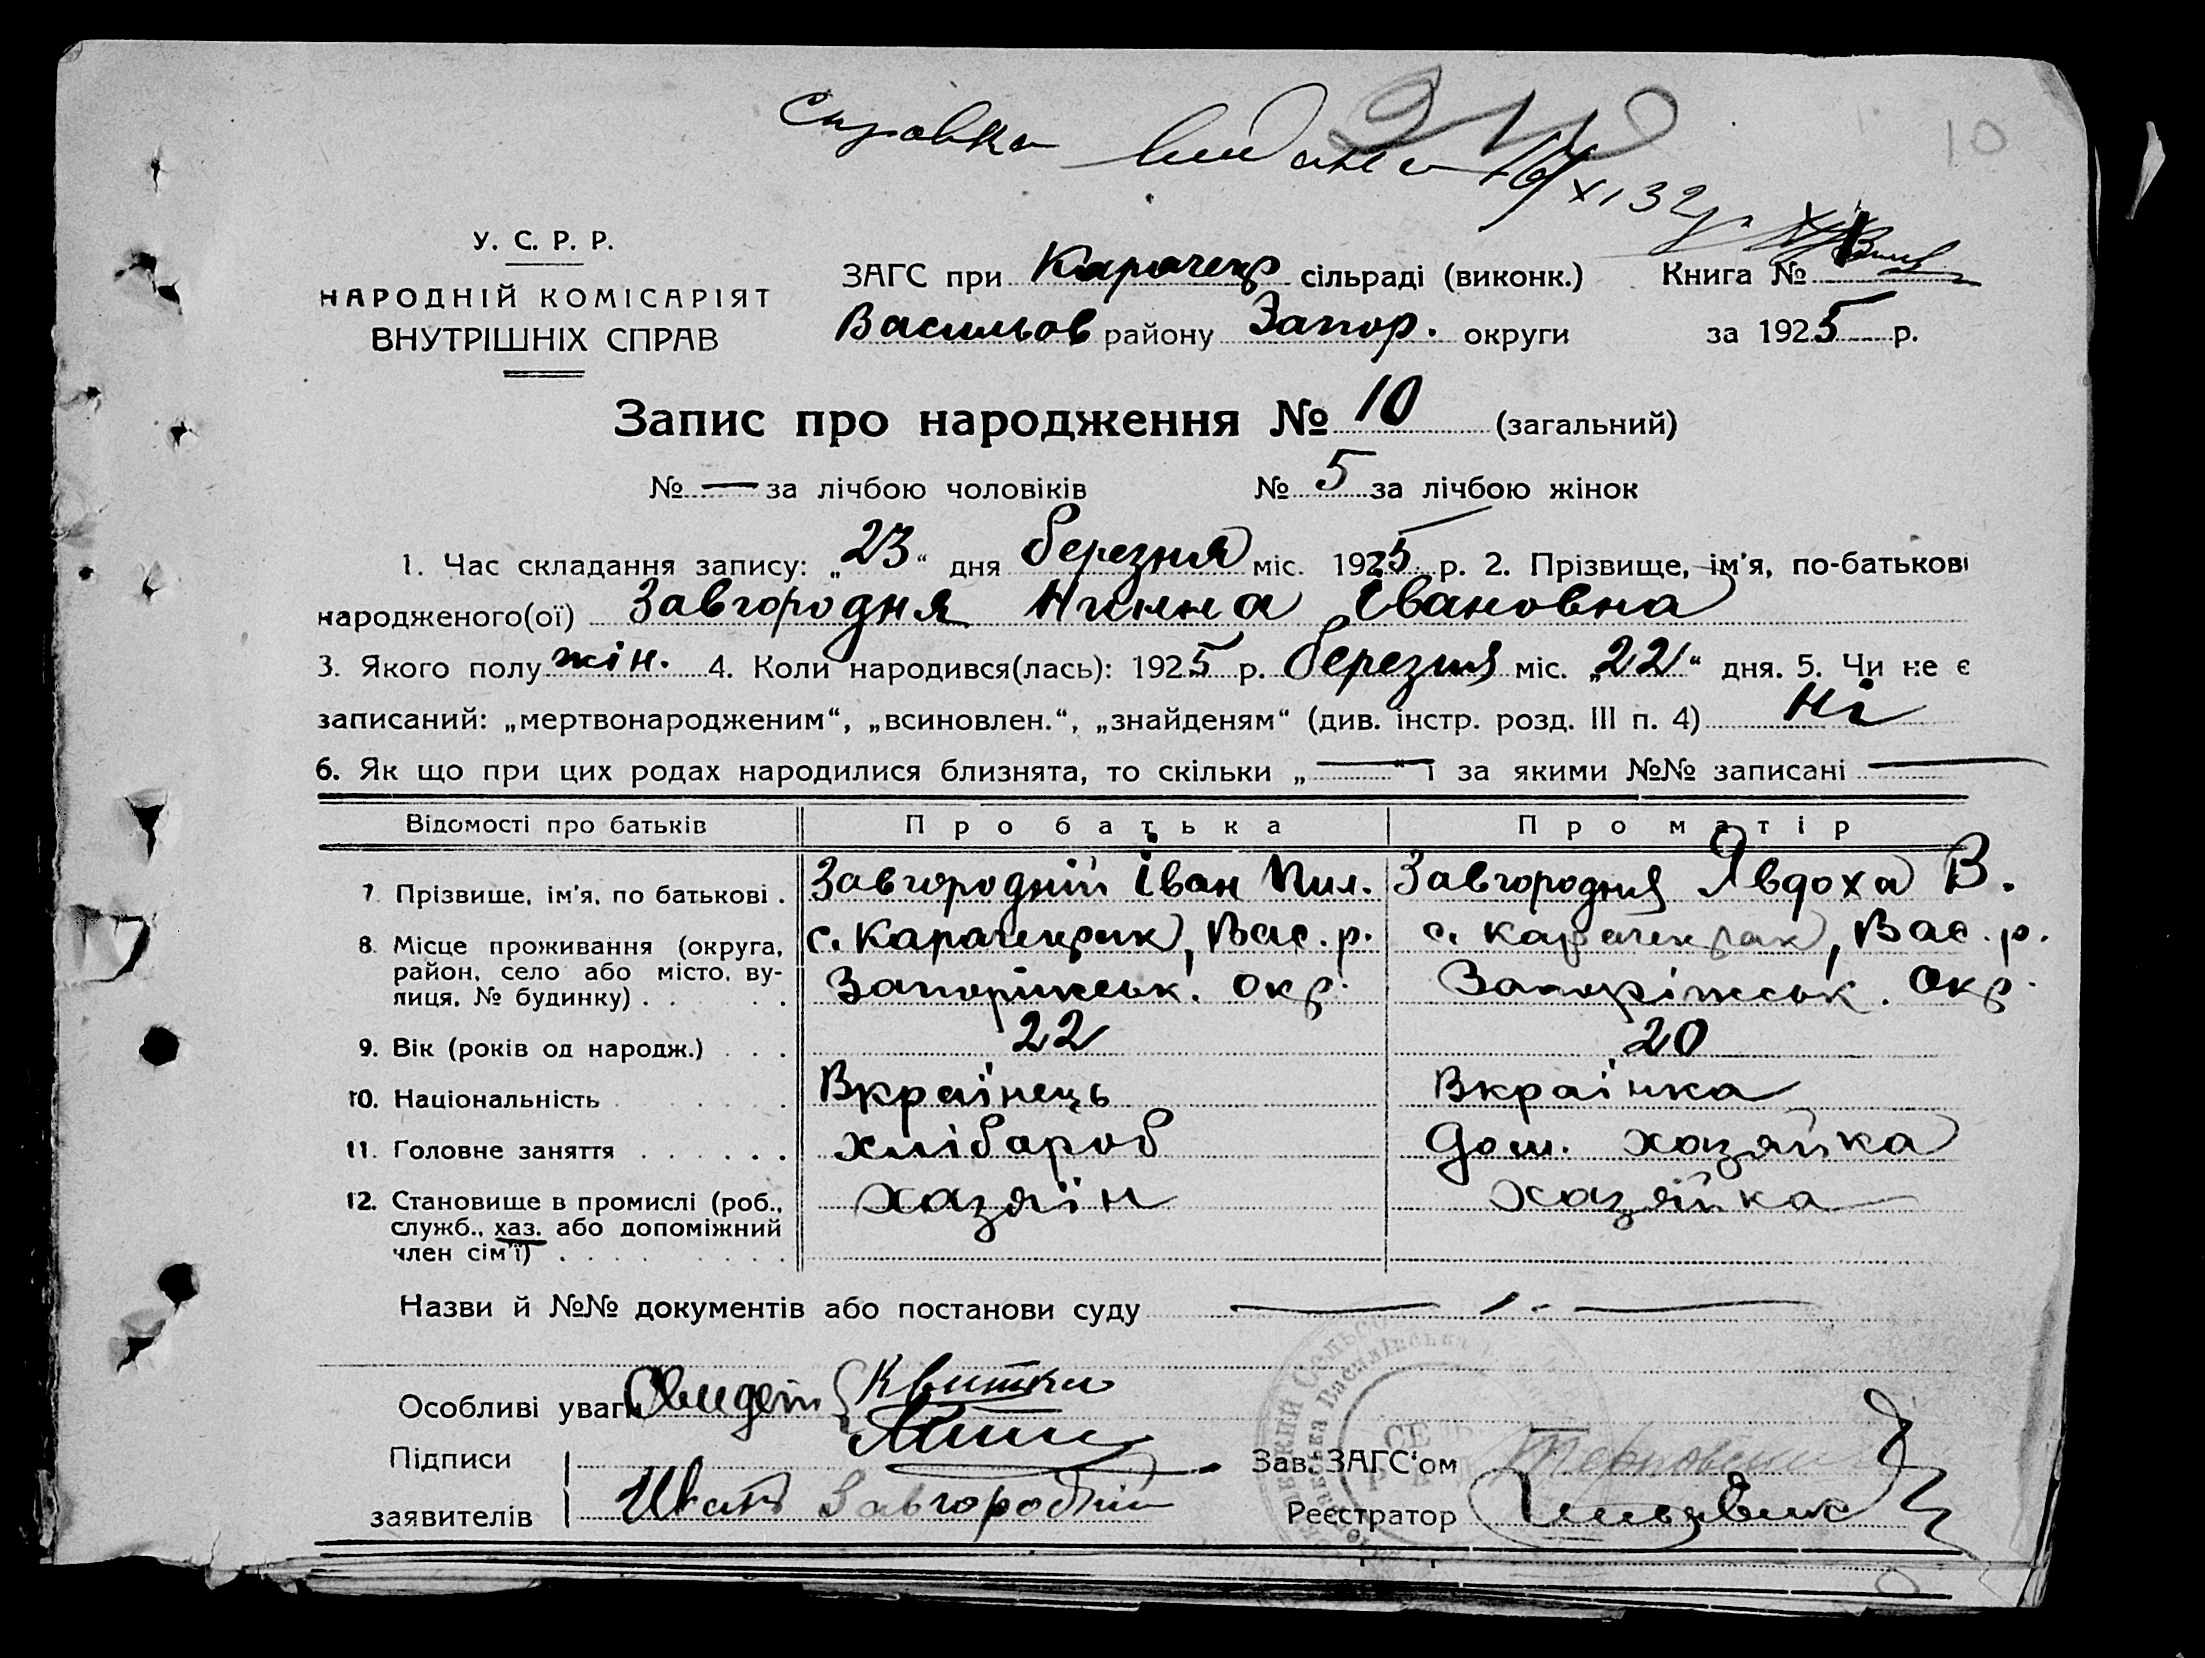 Справка видана 16/XI 32 р.
10
У. С. Р. Р.
НАРОДНІЙ КОМІСАРІЯТ
ВНУТРІШНІХ СПРАВ
ЗАГС при Карачекр сільраді (виконк.) Книга № 1
Васильов району Запор. округи за 1925 р.
Запис про народження № 10 (загальний)
№ — за лічбою чоловіків № 5 за лічбою жінок
1. Час складання запису: „23“ дня березня міс. 1925 р. 2. Прізвище, ім'я, по-батькові
народженого(ої) Завгородня Нинна Івановна
3. Якого полу жін. 4. Коли народився(лась): 1925 р. березня міс. „22“ дня. 5. Чи не є
записаний: „мертвонародженим“, „всиновлен.“, „знайденям“ (див. інстр. розд. III п. 4) Ні
6. Як що при цих родах народилися близнята, то скільки „—“ і за якими №№ записані —
Відомості про батьків Про батька Про матір
7. Прізвище, ім'я, по батькові . Завгородній Іван Пил. Завгородня Явдоха В.
8. Місце проживання (округа, с. Карачекрак, Вас. р. с. Карачекрак, Вас. р.
район, село або місто, ву-
лиця, № будинку) . . . . Запоріжськ. окр. Запоріжськ. окр.
9. Вік (років од народж.) . . . 22 20
10. Національність . . . . . . Вкраїнець Вкраїнка
11. Головне заняття . . . . . . хлібароб дом. хазяйка
12. Становище в промислі (роб., хазяїн хазяйка
служб., хаз. або допоміжний
член сім'ї) . . . . . . .
Назви й №№ документів або постанови суду —
Особливі уваги Свидет. Квитка
Підписи
Зав. ЗАГС'ом
заявителів Иван Завгородній
Реєстратор